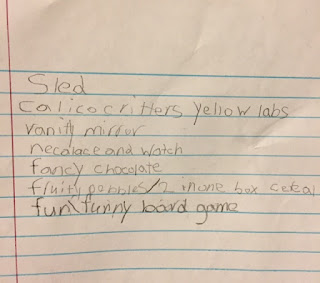 Sled
calico critters yellow labs
vanity mirror
necalace and watch
fancy chocolate
fruity pebbles/2 in one box ceral
fun funny board game